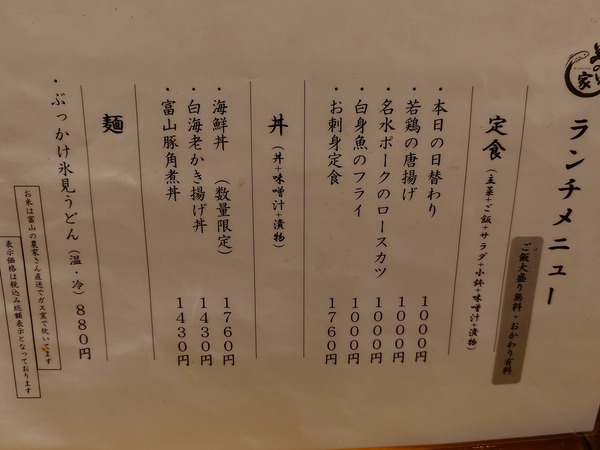 ランチメニュー
ご飯大盛り無料・おかわり有料
定食（主菜+ご飯+サラダ+小鉢+味噌汁+漬物）
・本日の日替わり 1000円
・若鶏の唐揚げ 1000円
・名水ポークのロースカツ 1000円
・白身魚のフライ 1000円
・お刺身定食 1760円
丼（丼+味噌汁+漬物）
・海鮮丼（数量限定） 1760円
・白海老かき揚げ丼 1430円
・富山豚角煮丼 1430円
麺
・ぶっかけ氷見うどん（温・冷） 880円
お米は富山の農家さん直送でガス窯で炊いてます
表示価格は税込み総額表示となっております